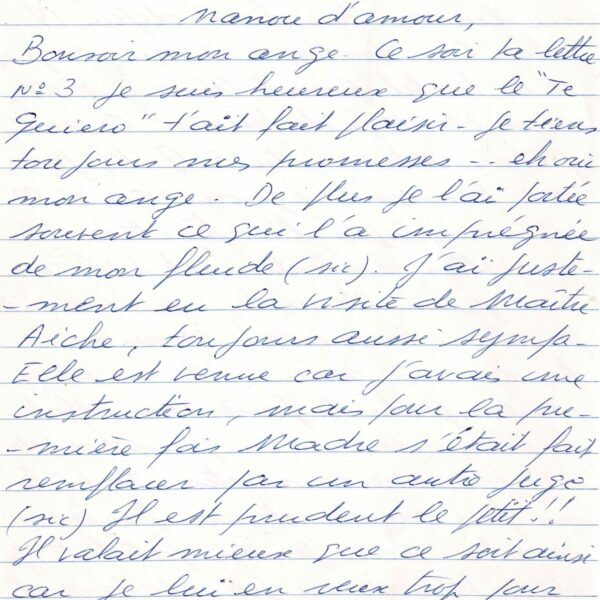 nanou d'amour,
Bonsoir mon ange. Ce soir ta lettre
N° 3 je suis heureux que le "Te
Quiero" t'ait fait plaisir - je tiens
toujours mes promesses -- eh oui
mon ange. De plus je l'ai portée
souvent ce qui l'a imprégnée
de mon fluide (sic). J'ai juste-
-ment eu la visite de Maître
Aiche, toujours aussi sympa-
Elle est venue car j'avais une
instruction, mais pour la pre-
-mière fois Madre s'était fait
remplacer par un autre juge
(sic) Il est prudent le petit!!
Il valait mieux que ce soit ainsi
car je lui en veux trop pour